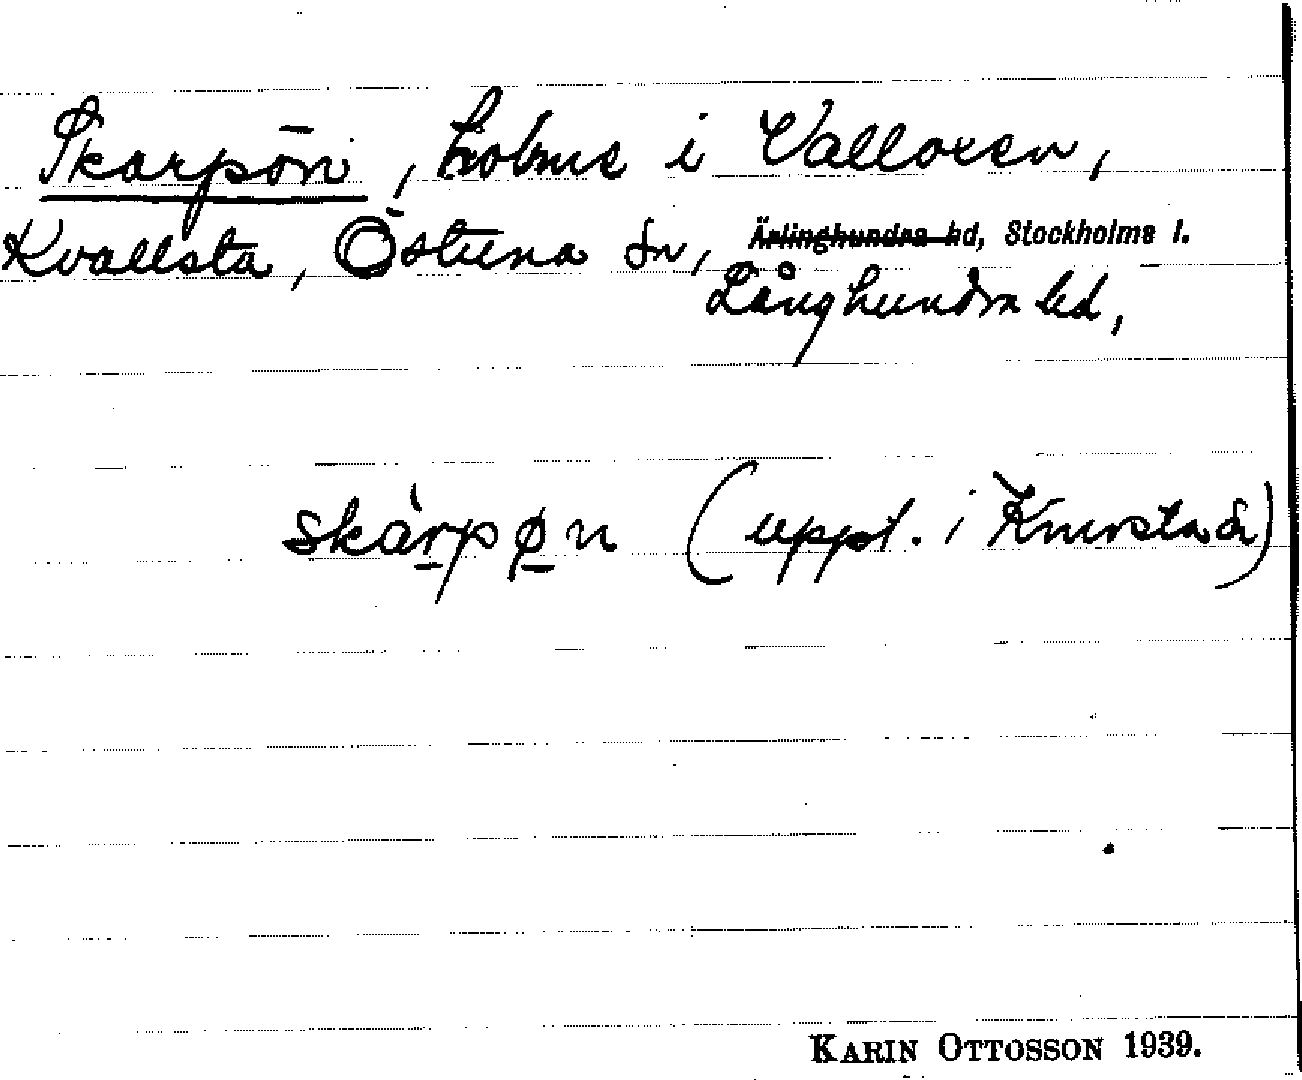 Skarpön, holme i Valloxen,
Kvallsta, Östuna sn, Ärlinghundra hd, Stockholms l.
Långhundra hd,
skàrpøn (uppt. i Knivsta å)
KARIN OTTOSSON 1939.